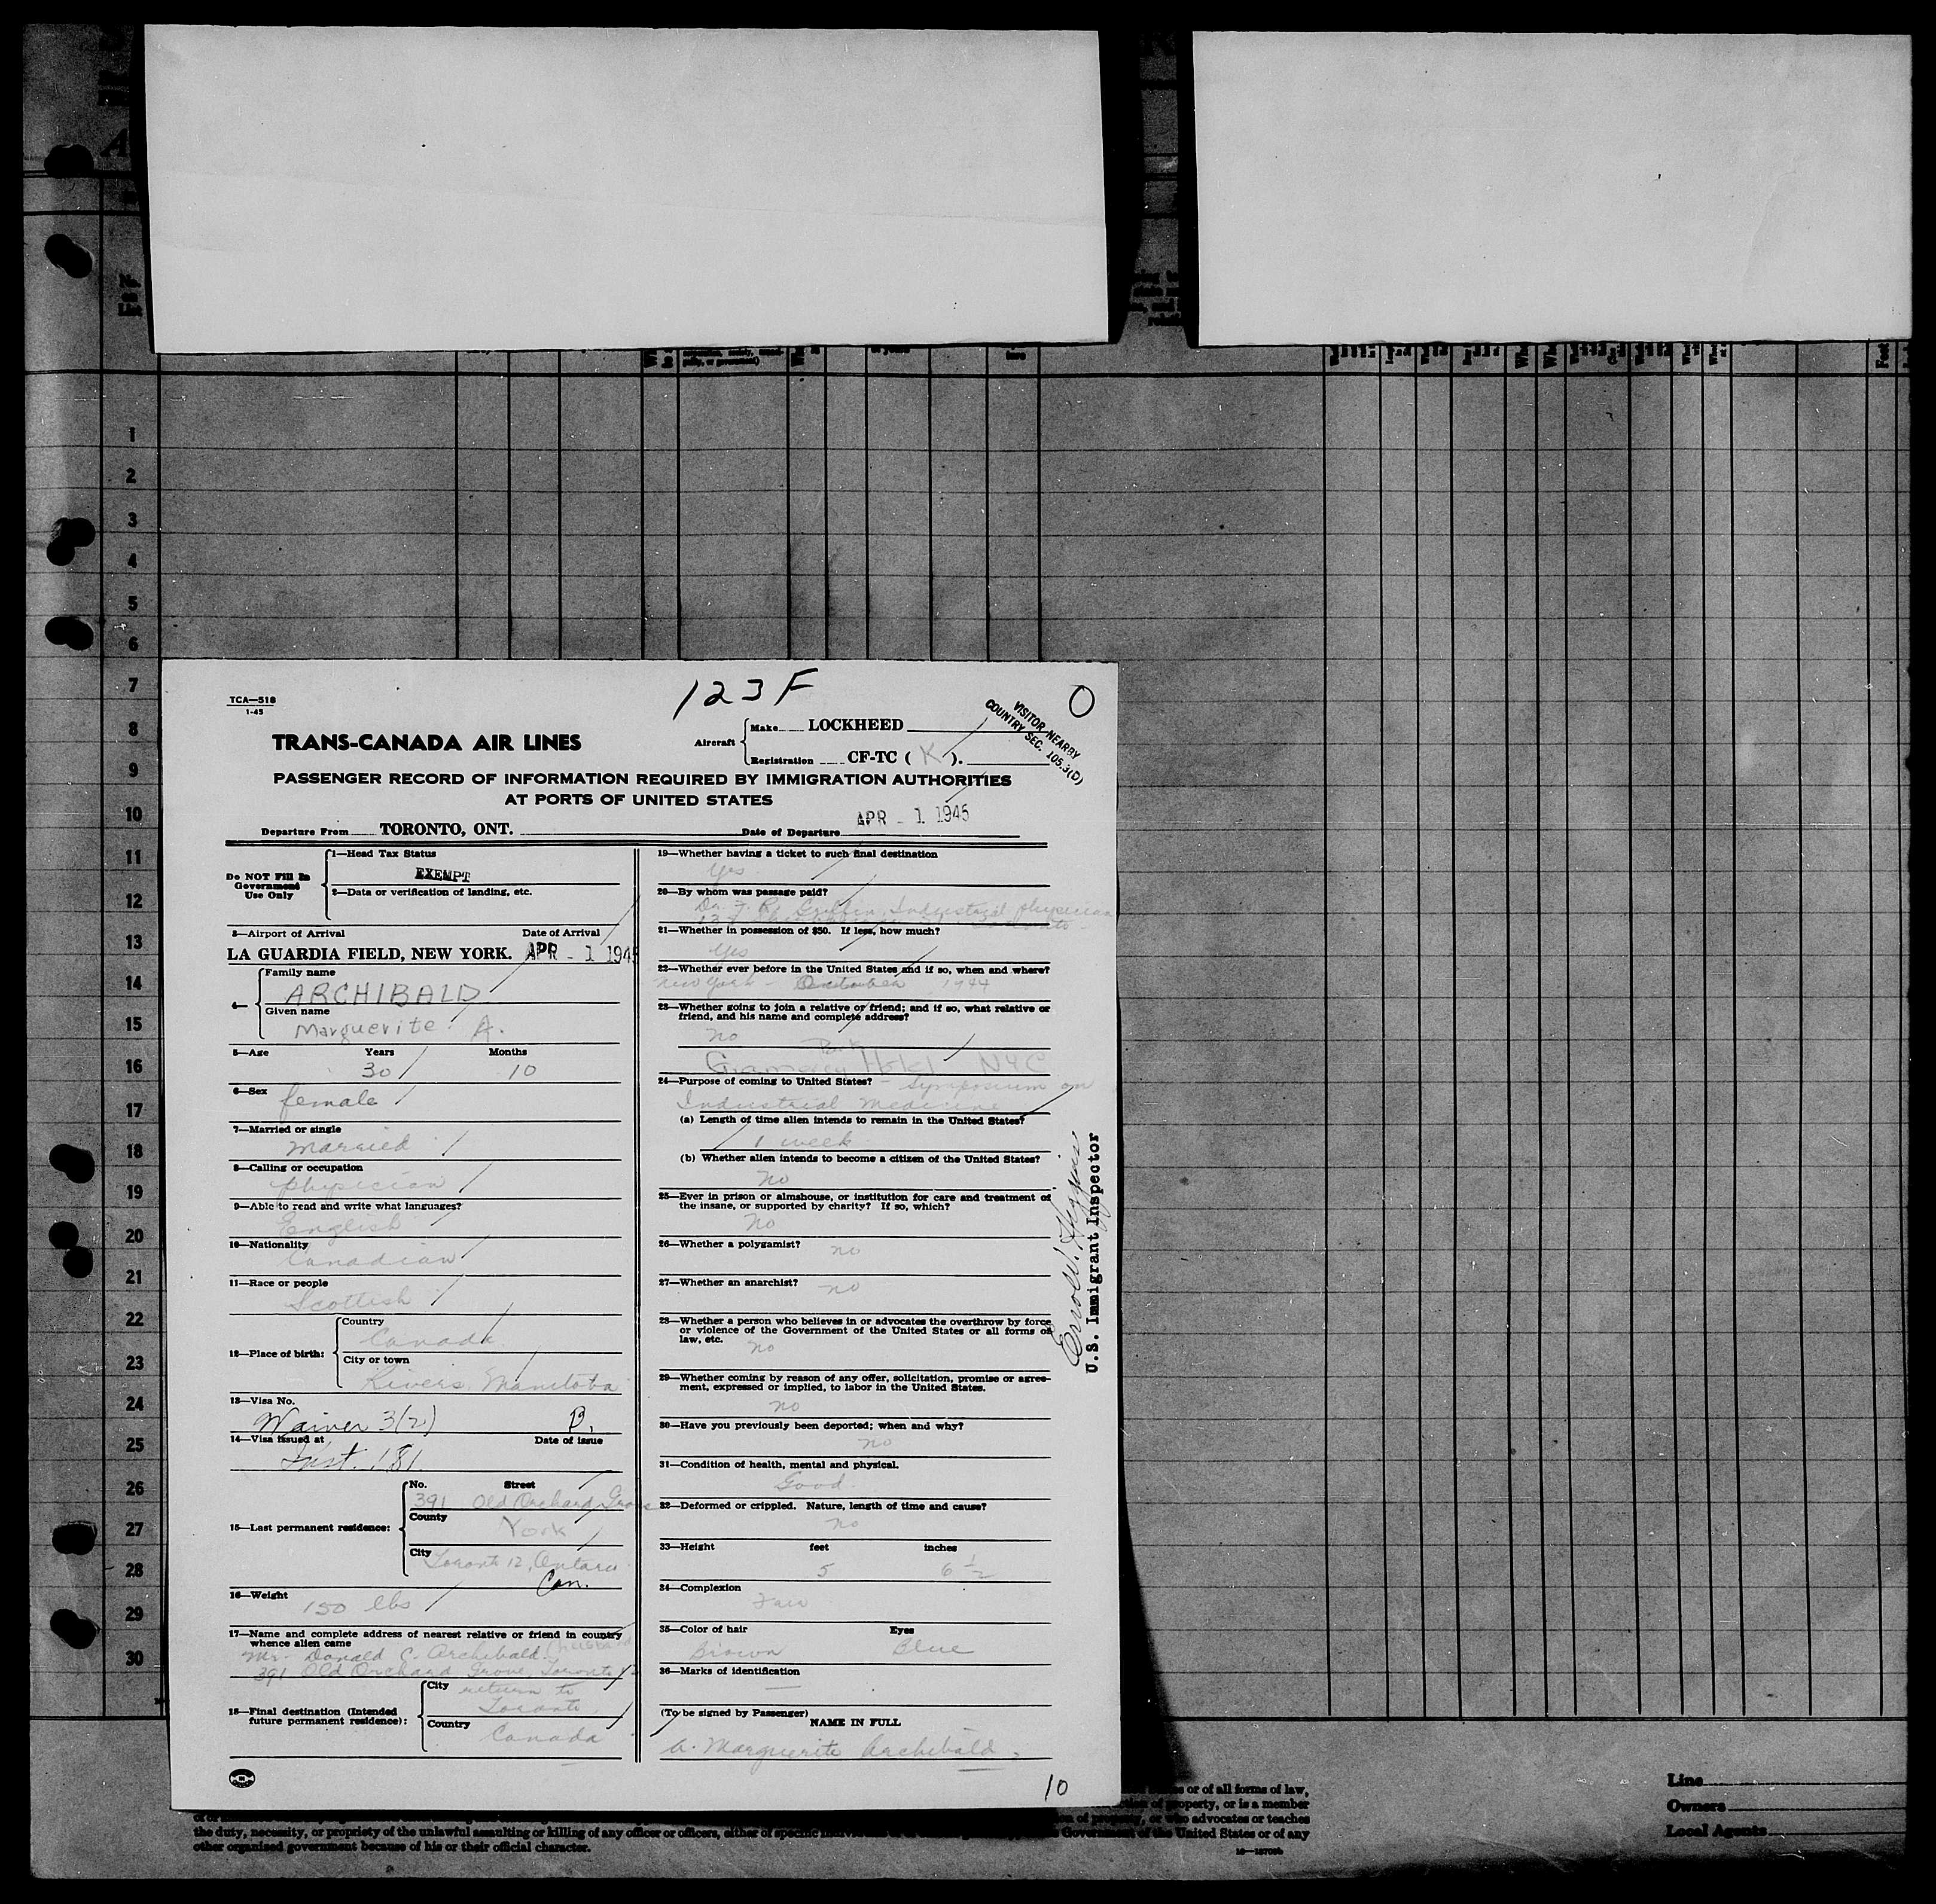 1
2
3
4
5
6
7
8
9
10
11
12
13
14
15
16
17
18
19
20
21
22
23
24
25
26
27
28
29
30
Feet
TCA—518
1-45
123F
O
VISITOR NEARBY
COUNTRY SEC. 105.3(D)
TRANS-CANADA AIR LINES
Aircraft
Make LOCKHEED
Registration CF-TC ( K ).
PASSENGER RECORD OF INFORMATION REQUIRED BY IMMIGRATION AUTHORITIES
AT PORTS OF UNITED STATES
Departure From TORONTO, ONT. Date of Departure APR - 1 1945
Do NOT Fill In
Government
Use Only
1—Head Tax Status
EXEMPT
2—Data or verification of landing, etc.
3—Airport of Arrival Date of Arrival
LA GUARDIA FIELD, NEW YORK. APR - 1 1945
4—
Family name
ARCHIBALD
Given name
Marguerite A.
5—Age Years Months
30 10
6—Sex
female
7—Married or single
Married
8—Calling or occupation
physician
9—Able to read and write what languages?
English
10—Nationality
Canadian
11—Race or people
Scottish
12—Place of birth:
Country
Canada
City or town
Rivers, Manitoba
13—Visa No.
Waiver 3(2)
14—Visa issued at Date of issue
Inst. 181
15—Last permanent residence:
No. Street
391 Old Orchard Grove
County
York
City
Toronto 12, Ontario
Can.
16—Weight
150 lbs
17—Name and complete address of nearest relative or friend in country
whence alien came
Mr. Donald C. Archibald (husband)
391 Old Orchard Grove, Toronto 12
18—Final destination (Intended
future permanent residence):
City return to
Toronto
Country
Canada
19—Whether having a ticket to such final destination
Yes
20—By whom was passage paid?
Dr. F. R. Griffin, Industrial physician
21—Whether in possession of $50. If less, how much?
Yes
22—Whether ever before in the United States and if so, when and where?
New York - October 1944
23—Whether going to join a relative or friend; and if so, what relative or
friend, and his name and complete address?
no
Park
Gramercy Hotel NYC
24—Purpose of coming to United States? - Symposium on
Industrial Medicine
(a) Length of time alien intends to remain in the United States?
1 week
(b) Whether alien intends to become a citizen of the United States?
No
25—Ever in prison or almshouse, or institution for care and treatment of
the insane, or supported by charity? If so, which?
No
26—Whether a polygamist?
no
27—Whether an anarchist?
no
28—Whether a person who believes in or advocates the overthrow by force
or violence of the Government of the United States or all forms of
law, etc.
no
29—Whether coming by reason of any offer, solicitation, promise or agree-
ment, expressed or implied, to labor in the United States.
no
30—Have you previously been deported; when and why?
no
31—Condition of health, mental and physical.
Good
32—Deformed or crippled. Nature, length of time and cause?
no
33—Height feet inches
5 6 1/2
34—Complexion
Fair
35—Color of hair Eyes
Brown Blue
36—Marks of identification
—
(To be signed by Passenger)
NAME IN FULL
A. Marguerite Archibald.
10
U.S. Immigrant Inspector
or of all forms of law,
property, or is a member
advocates or teaches
the duty, necessity, or propriety of the unlawful assaulting or killing of any officer or officers, either of specific
Government of the United States or of any
other organised government because of his or their official character.
Line
Owners
Local Agents